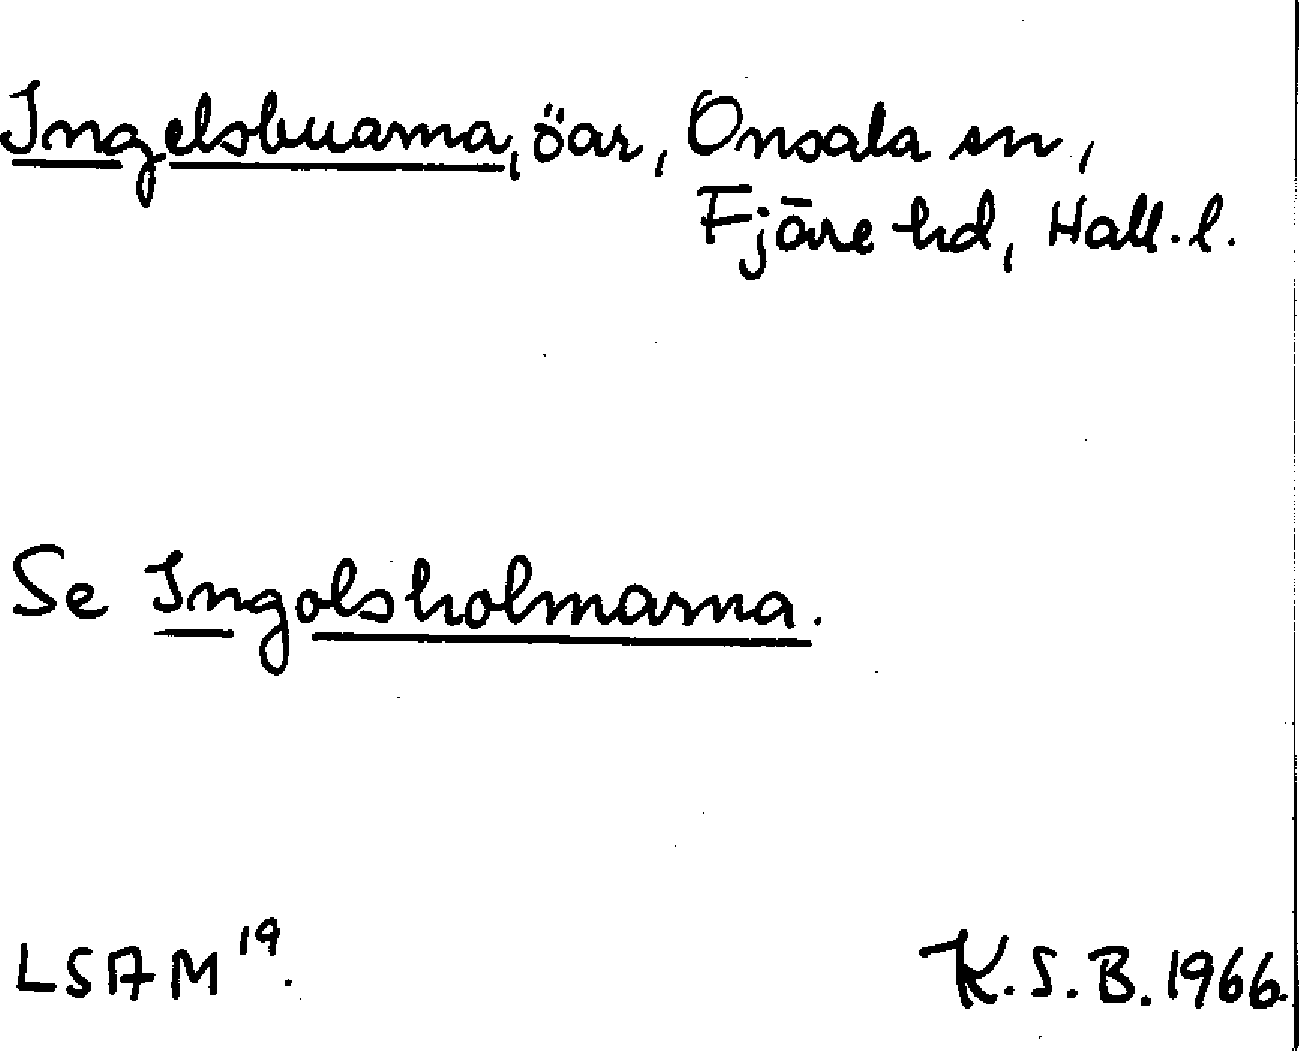 Ingelsbuarna, öar, Onsala sn,
Fjäre hd, Hall. l.
Se Ingolsholmarna.
LSAM 19.
K.S.B. 1966.